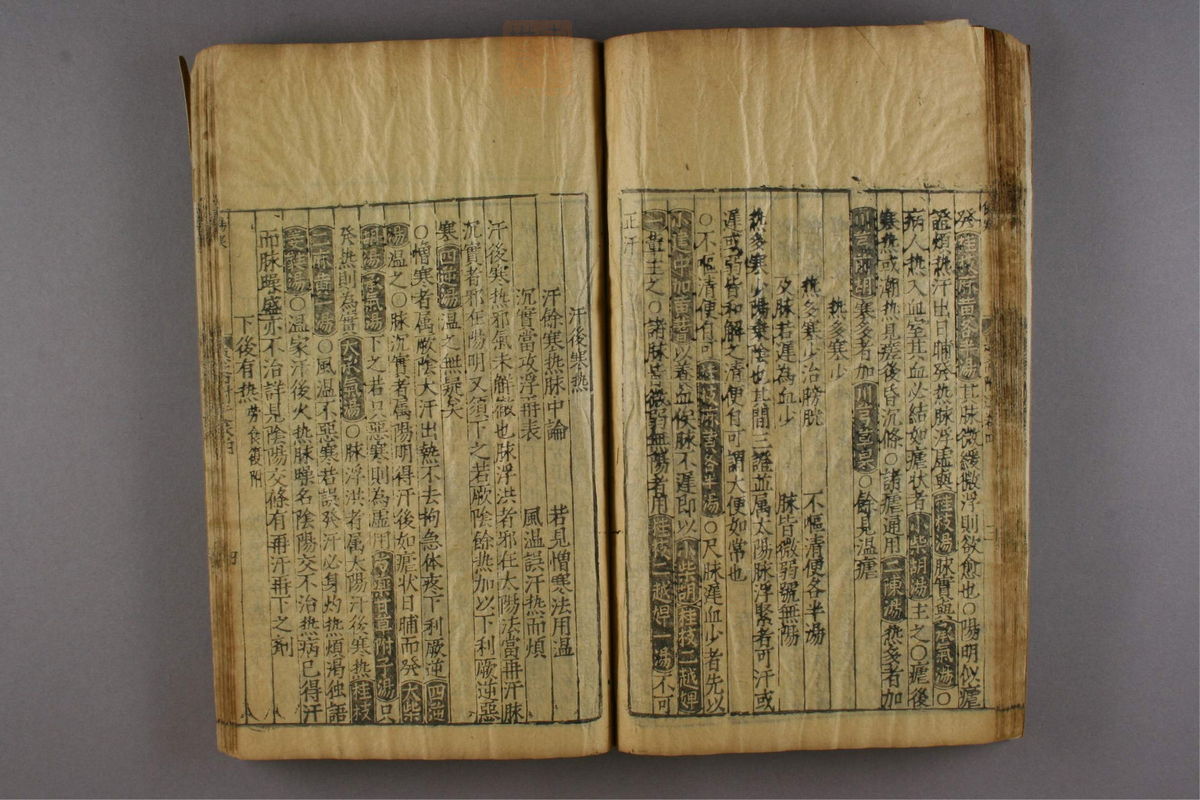 發桂枝麻黄各半湯其脉微緩微浮則欲愈也○陽明似瘧
證煩熱汗出日晡發熱脉浮虛與桂枝湯脉實與承氣湯○
病人熱入血室其血必結如瘧狀者小柴胡湯主之○瘧後
寒熱或潮熱見瘥後昏沉條○諸瘧通用二陳湯熱多者加
川芎前胡寒多者加川芎草果○餘見温瘧
熱多寒少
熱多寒少治膀胱 不嘔清便各半湯
尺脉若遲為血少 脉皆微弱號無陽
熱多寒少陽乘陰也其間三證並属太陽脉浮緊者可汗或
遲或弱皆和解之清便自可謂大便如常也
○不嘔清便自可桂枝麻黄各半湯○尺脉遲血少者先以
小建中加黄芪以養血候脉不遲即以小柴胡桂枝二越婢
一量主之○諸脉皆微弱無陽者用桂枝二越婢一湯不可
正汗
汗後寒熱
汗餘寒熱脉中論 若見憎寒法用温
沉實當攻浮再表 風温誤汗熱而煩
汗後寒熱邪氣未解徹也脉浮洪者邪在太陽法當再汗脉
沉實者邪在陽明又須下之若厥陰餘熱加以下利厥逆惡
寒四逆湯温之無疑矣
○憎寒者属厥陰大汗出熱不去拘急体疼下利厥逆四逆
湯温之○脉沉實者属陽明得汗後如瘧狀日晡而發大柴
胡湯承氣湯下之若只惡寒則為虛用芍藥甘草附子湯只
發熱則為實大承氣湯○脉浮洪者属太陽汗後寒熱桂枝
二麻黄一湯○風温不惡寒若誤發汗必身灼熱煩渴独語
萎蕤湯○温家汗後火熱脉躁名陰陽交不治熱病已得汗
而脉躁盛亦不治詳見陰陽交條有再汗再下之劑
下後有熱 勞食復附